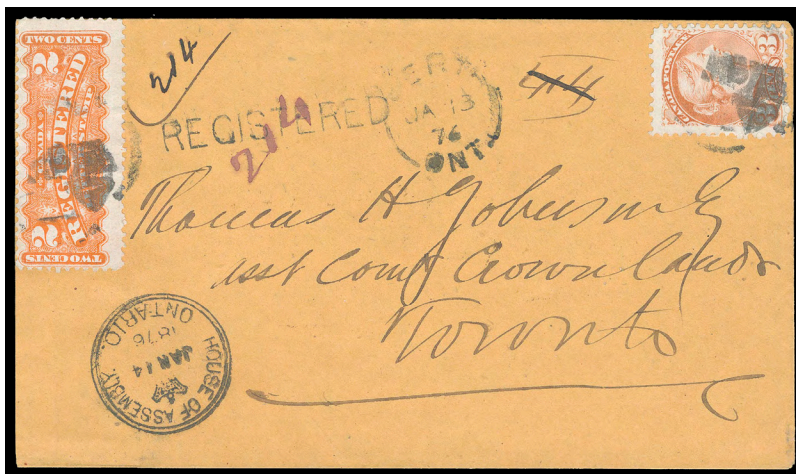 TWO CENTS
2 REGISTERED 2
CANADA STAMP
TWO CENTS
214
REGISTERED
214
JA 13
76
ONT.
44
3
Thomas H Johnson Esq
asst Comr Crown Lands
Toronto
HOUSE OF ASSEMBLY.
JAN 14
1876
ONTARIO.